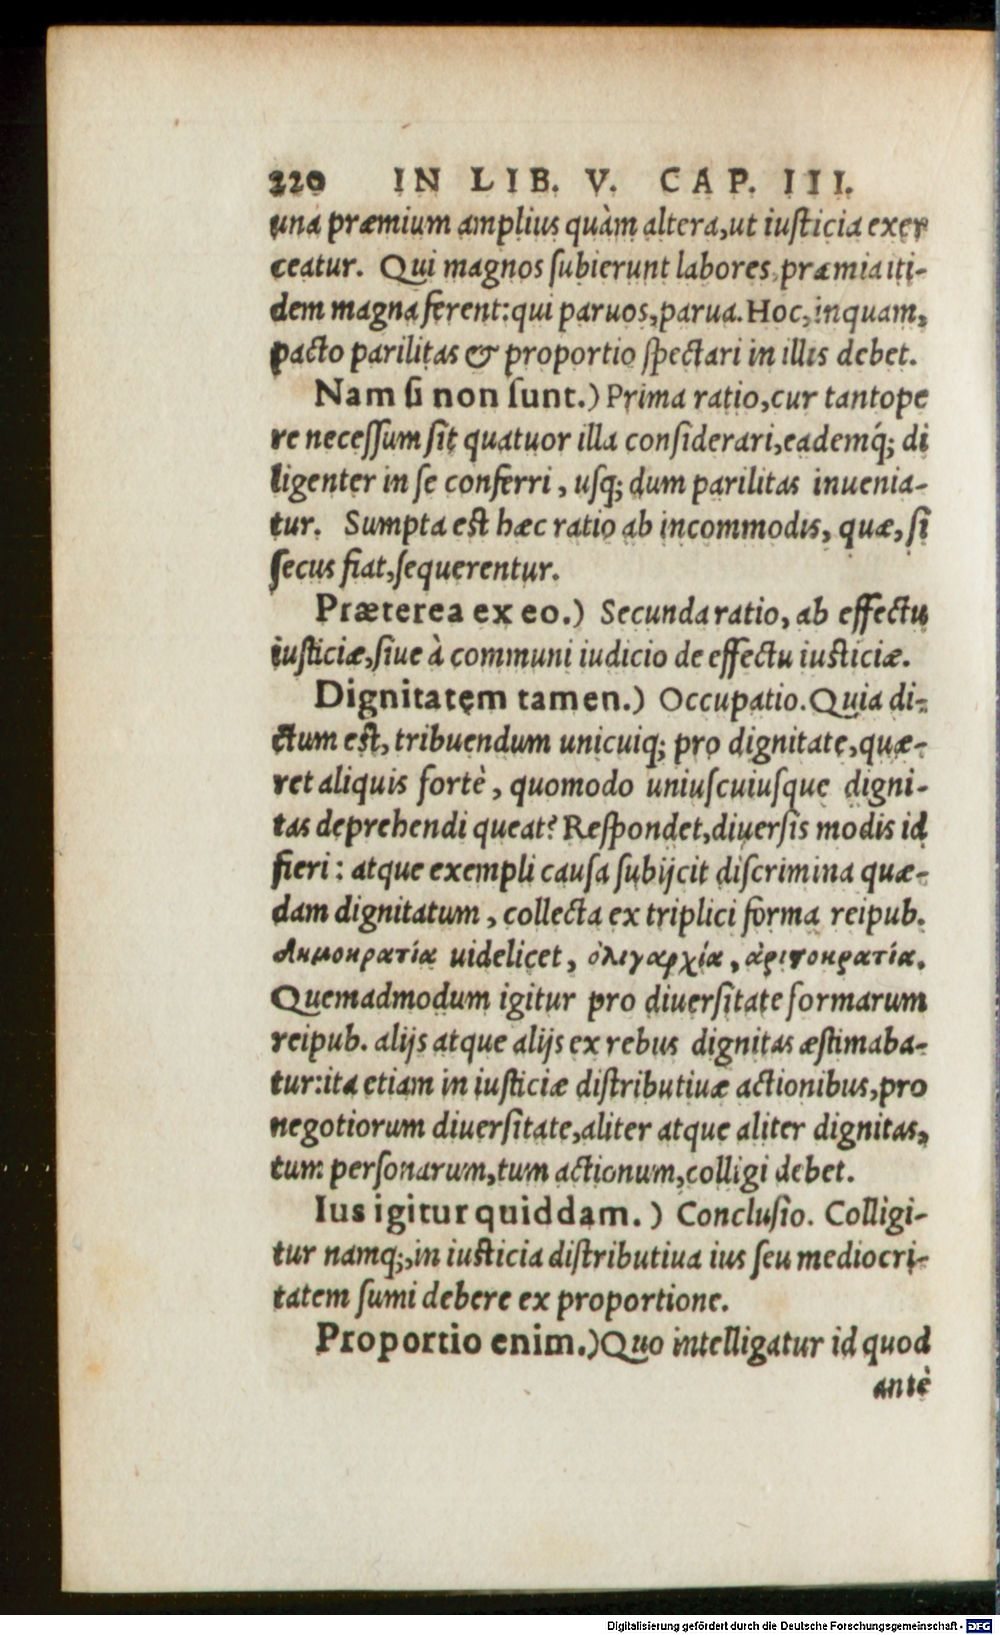 220 IN LIB. V. CAP. III.
una præmium amplius quàm altera,ut iusticia exer
ceatur. Qui magnos subierunt labores, præmia iti-
dem magna ferent:qui paruos,parua. Hoc, inquam,
pacto parilitas & proportio spectari in illis debet.
Nam si non sunt.) Prima ratio,cur tantope
re necessum sit quatuor illa considerari,eademq́; di
ligenter in se conferri, usq; dum parilitas inuenia-
tur. Sumpta est hæc ratio ab incommodis, quæ, si
secus fiat,sequerentur.
Præterea ex eo.) Secunda ratio, ab effectu
iusticiæ,siue à communi iudicio de effectu iusticiæ.
Dignitatem tamen.) Occupatio. Quia di-
ctum est, tribuendum unicuiq; pro dignitate,quæ-
ret aliquis fortè, quomodo uniuscuiusque digni-
tas deprehendi queat? Respondet,diuersis modis id
fieri: atque exempli causa subijcit discrimina quæ-
dam dignitatum, collecta ex triplici forma reipub.
δημοκρατία uidelicet, ὀλιγαρχία, ἀριστοκρατία.
Quemadmodum igitur pro diuersitate formarum
reipub. alijs atque alijs ex rebus dignitas æstimaba-
tur:ita etiam in iusticiæ distributiuæ actionibus,pro
negotiorum diuersitate,aliter atque aliter dignitas,
tum personarum,tum actionum,colligi debet.
Ius igitur quiddam.) Conclusio. Colligi-
tur namq;,in iusticia distributiua ius seu mediocri-
tatem sumi debere ex proportione.
Proportio enim.) Quo intelligatur id quod
antè
Digitalisierung gefördert durch die Deutsche Forschungsgemeinschaft - DFG